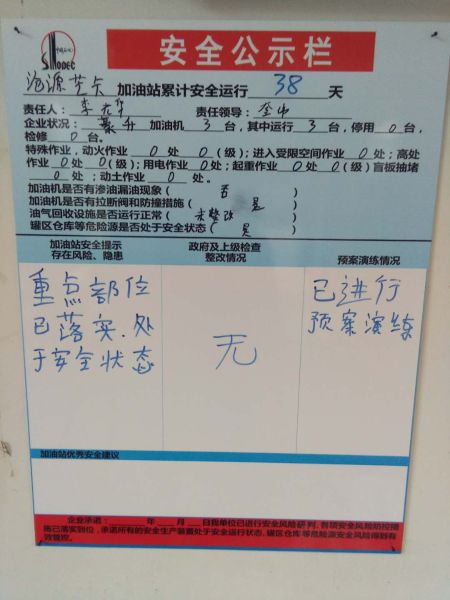 中国石化
SINOPEC
安全公示栏
沧源芒卡 加油站累计安全运行 38 天
责任人: 李 华 责任领导:
企业状况: 加油机 3 台,其中运行 3 台,停用 0 台,
检修 0 台。
特殊作业,动火作业 0 处 0 (级);进入受限空间作业 0 处;高处
作业 0 处 0 (级);用电作业 0 处;起重作业 0 处 0 (级)盲板抽堵
0 处;动土作业 0 处。
加油机是否有渗油漏油现象( 否
加油机是否有拉断阀和防撞措施( 是 )
油气回收设施是否运行正常( 未整改 )
罐区仓库等危险源是否处于安全状态( 是 )
加油站安全提示
存在风险、隐患
政府及上级检查
整改情况
预案演练情况
重点部位
已落实.处
于安全状态
无
已进行
预案演练
加油站优秀安全建议
企业承诺: 年 月 日我单位已进行安全风险研判,各项安全风险防控措
施已落实到位,承诺所有的安全生产装置处于安全运行状态,罐区仓库等危险源安全风险得到有
效管控。